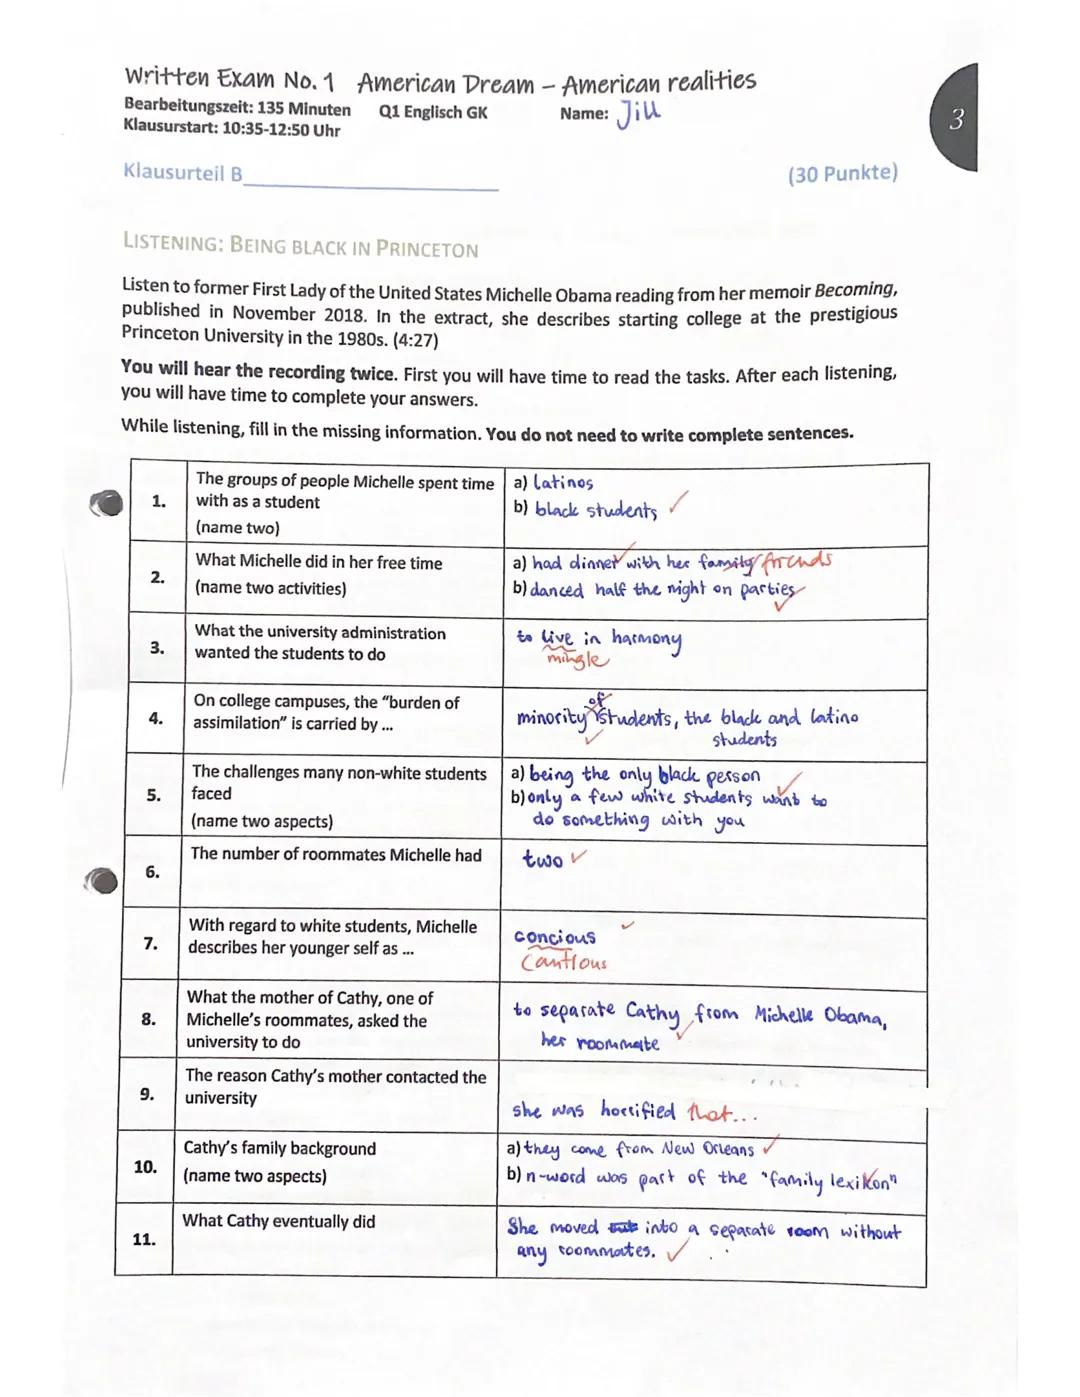 Written Exam No. 1 American Dream – American realities
Bearbeitungszeit: 135 Minuten Q1 Englisch GK Name: Jill
Klausurstart: 10:35-12:50 Uhr
3
Klausurteil B (30 Punkte)
LISTENING: BEING BLACK IN PRINCETON
Listen to former First Lady of the United States Michelle Obama reading from her memoir Becoming,
published in November 2018. In the extract, she describes starting college at the prestigious
Princeton University in the 1980s. (4:27)
You will hear the recording twice. First you will have time to read the tasks. After each listening,
you will have time to complete your answers.
While listening, fill in the missing information. You do not need to write complete sentences.
1.
The groups of people Michelle spent time
with as a student
(name two)
a) latinos
b) black students
2.
What Michelle did in her free time
(name two activities)
a) had dinner with her family friends
b) danced half the night on parties
3.
What the university administration
wanted the students to do
to live in harmony
mingle
4.
On college campuses, the "burden of
assimilation" is carried by ...
of
minority students, the black and latino
students
5.
The challenges many non-white students
faced
(name two aspects)
a) being the only black person
b) only a few white students want to
do something with you
6.
The number of roommates Michelle had
two
7.
With regard to white students, Michelle
describes her younger self as ...
concious
cautious
8.
What the mother of Cathy, one of
Michelle's roommates, asked the
university to do
to separate Cathy from Michelle Obama,
her roommate
9.
The reason Cathy's mother contacted the
university
she was horrified that...
10.
Cathy's family background
(name two aspects)
a) they come from New Orleans
b) n-word was part of the "family lexikon"
11.
What Cathy eventually did
She moved out into a separate room without
any roommates.